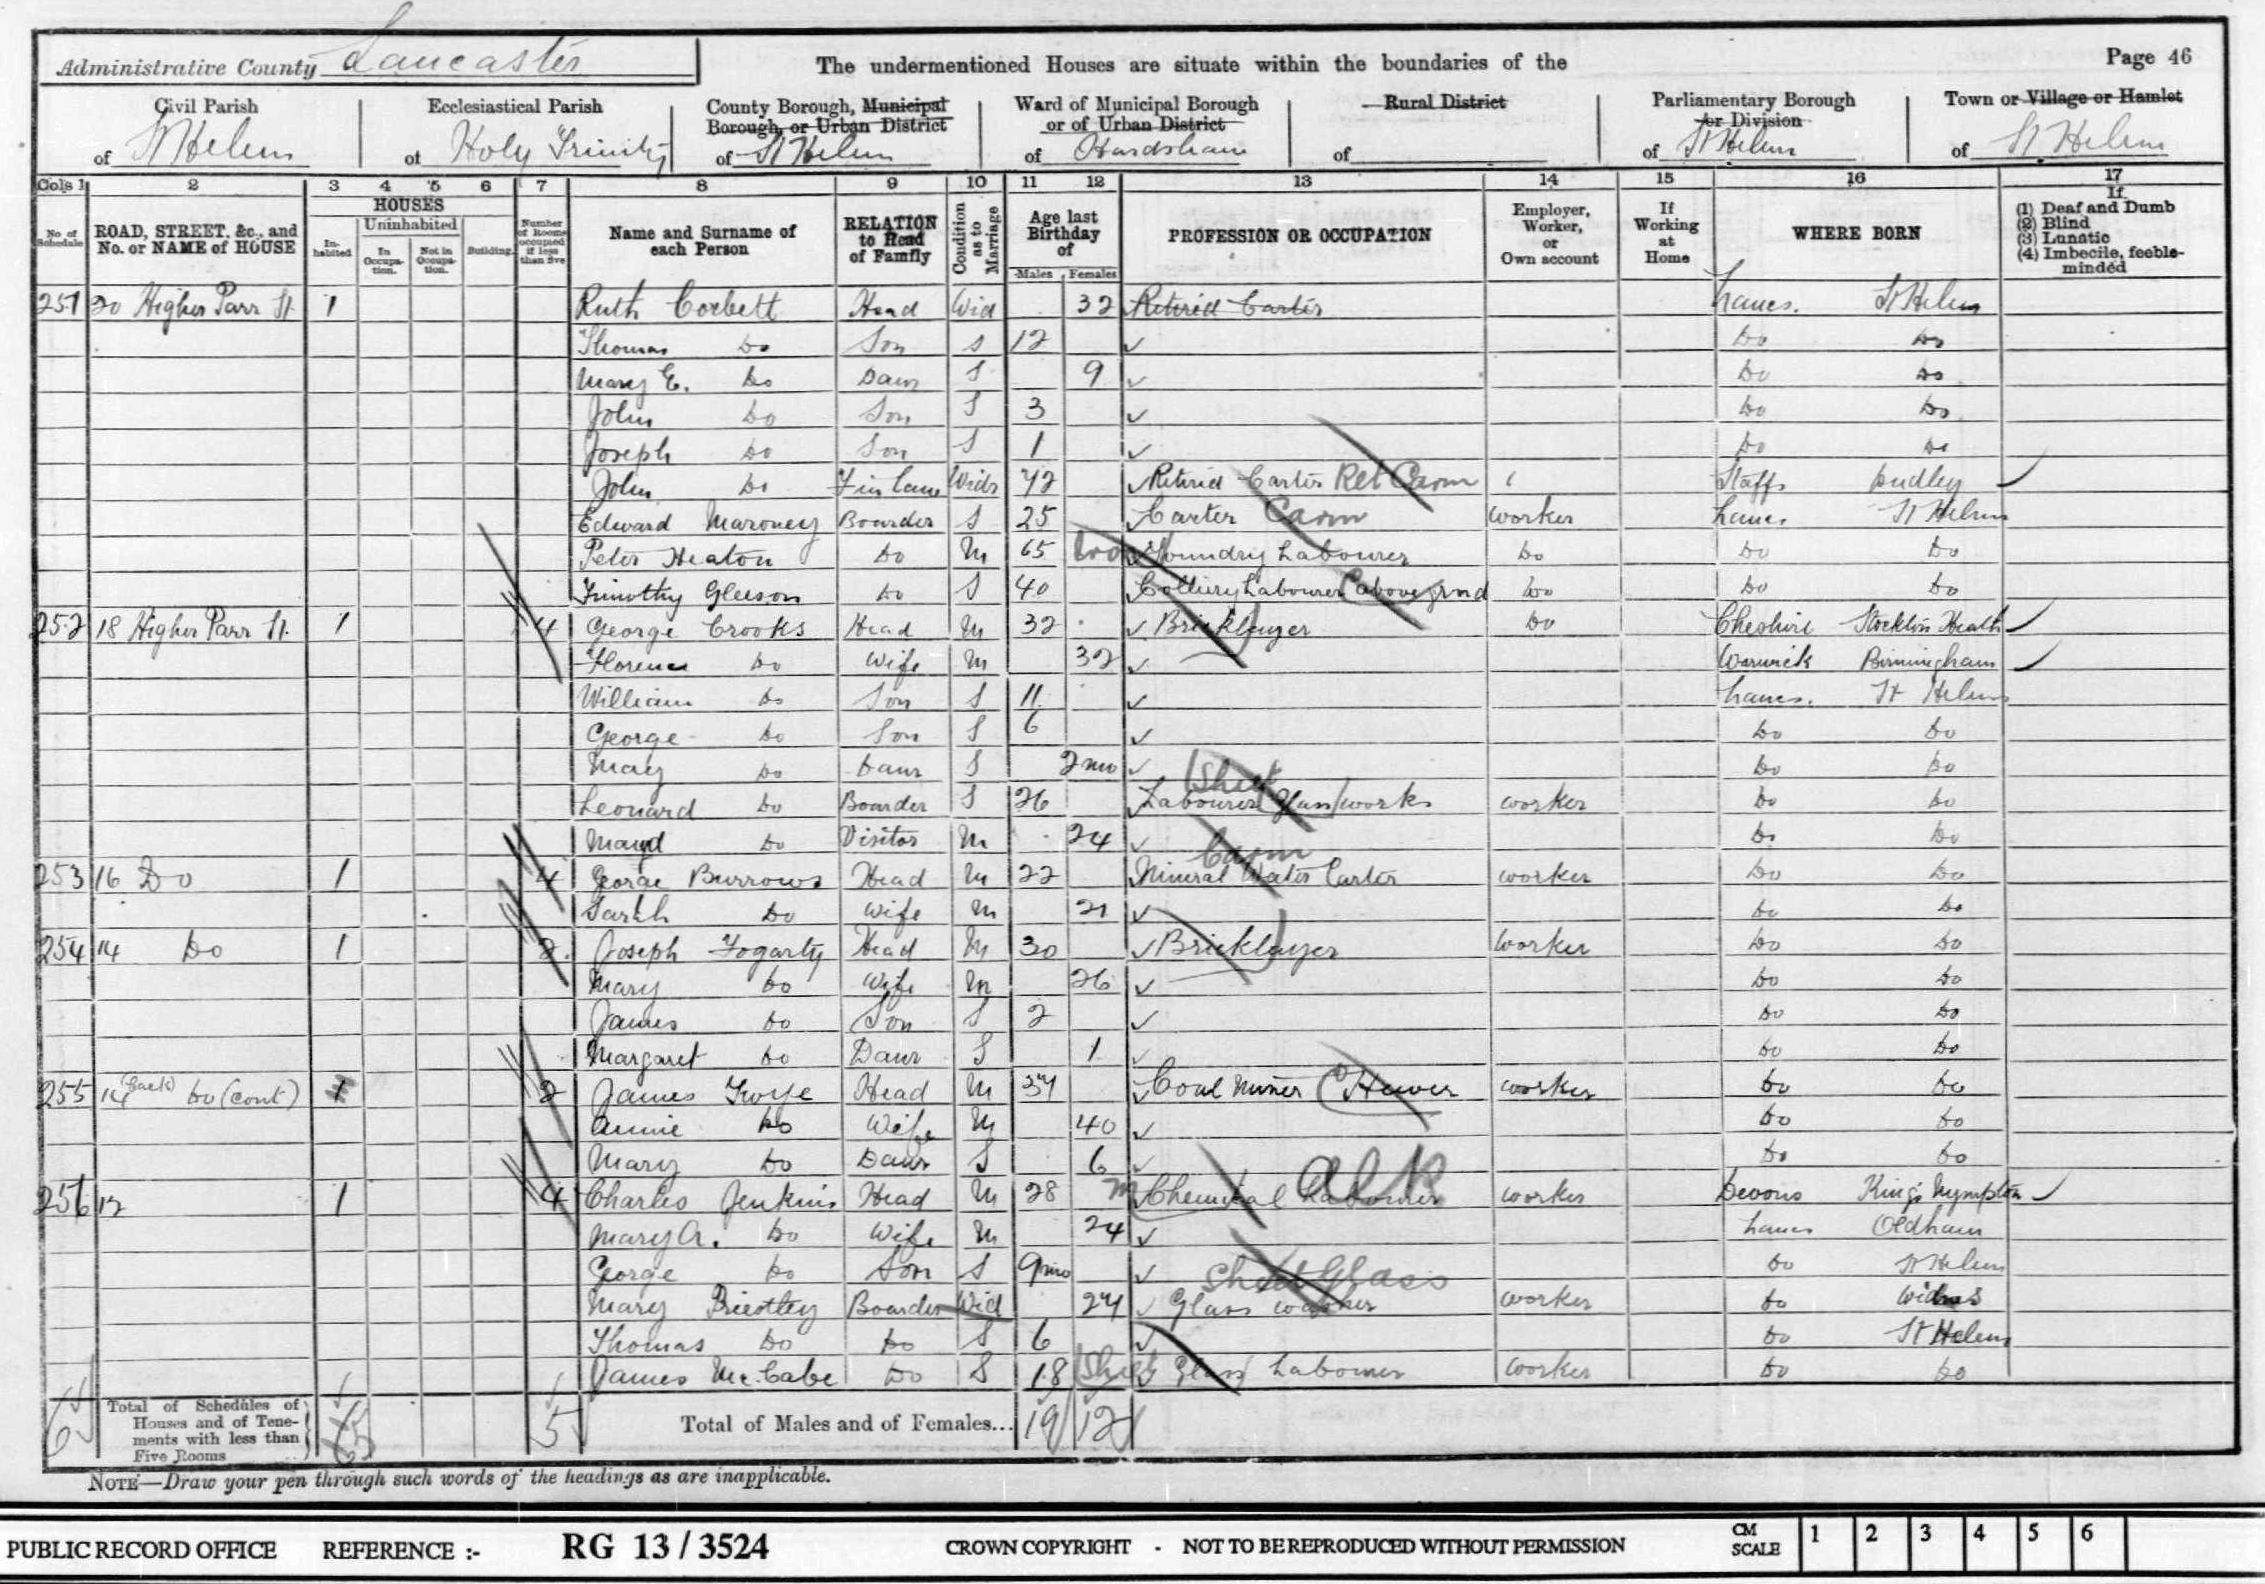 Administrative County Lancaster The undermentioned Houses are situate within the boundaries of the Page 46
Civil Parish Ecclesiastical Parish County Borough, Municipal Borough, or Urban District Ward of Municipal Borough or of Urban District Rural District Parliamentary Borough or Division Town or Village or Hamlet
of St Helens of Holy Trinity of St Helens of Hardshaw of of St Helens of St Helens
Cols 1 2 3 4 5 6 7 8 9 10 11 12 13 14 15 16 17
No. of Schedule ROAD, STREET, &c., and No. or NAME of HOUSE HOUSES Inhabited Uninhabited In Occupation. Not in Occupation. Building. Number of Rooms occupied if less than five Name and Surname of each Person RELATION to Head of Family Condition as to Marriage Age last Birthday of Males Females PROFESSION OR OCCUPATION Employer, Worker, or Own account If Working at Home WHERE BORN If (1) Deaf and Dumb (2) Blind (3) Lunatic (4) Imbecile, feeble-minded
251 20 Higher Parr St. 1 Ruth Corbett Head Wid 32 Retired Carter Lancs. St Helens
Thomas Do Son S 12 Do Do
Mary E. Do Daur S 9 Do Do
John Do Son S 3 Do Do
Joseph Do Son S 1 Do Do
John Do F in law Widr 72 Retired Carter Ret Carm Staffs Dudley
Edward Maroney Boarder S 25 Carter Carm worker Lancs. St Helens
Peter Heaton Do M 65 Foundry Labourer Do Do Do
Timothy Gleeson Do S 40 Colliery Labourer above grnd Do Do Do
252 18 Higher Parr St. 1 4 George Crooks Head M 32 Bricklayer Do Cheshire Stockton Heath
Florence Do Wife M 32 Warwick Birmingham
William Do Son S 11 Lancs. St Helens
George Do Son S 6 Do Do
May Do Daur S 2 mo Do Do
Sheet
Leonard Do Boarder S 26 Labourer Glass works worker Do Do
Maud Do Visitor M 24 Do Do
Carm
253 16 Do 1 4 George Burrows Head M 22 Mineral Water Carter worker Do Do
Sarah Do Wife M 21 Do Do
254 14 Do 1 2 Joseph Fogarty Head M 30 Bricklayer worker Do Do
Mary Do Wife M 26 Do Do
James Do Son S 2 Do Do
Margaret Do Daur S 1 Do Do
255 14 (back) Do (cont) 1 2 James Head M 37 Coal Miner Hewer worker Do Do
Annie Do Wife M 40 Do Do
Mary Do Daur S 6 Do Do
256 12 1 4 Charles Jenkins Head M 28 Chemical Labourer Alk worker Devons King's Nympton
Mary A. Do Wife M 24 Lancs Oldham
George Do Son S 9 mo Do St Helens
Sheet Glass
Mary Priestley Boarder Wid 27 Glass washer worker Do Widnes
Thomas Do Do S 6 Do St Helens
James Mc.Cabe Do S 18 Sheet Glass Labourer worker Do Do
6 Total of Schedules of Houses and of Tenements with less than Five Rooms 5 5 Total of Males and of Females... 19 12
NOTE—Draw your pen through such words of the headings as are inapplicable.
PUBLIC RECORD OFFICE REFERENCE :- RG 13 / 3524 CROWN COPYRIGHT - NOT TO BE REPRODUCED WITHOUT PERMISSION CM SCALE 1 2 3 4 5 6